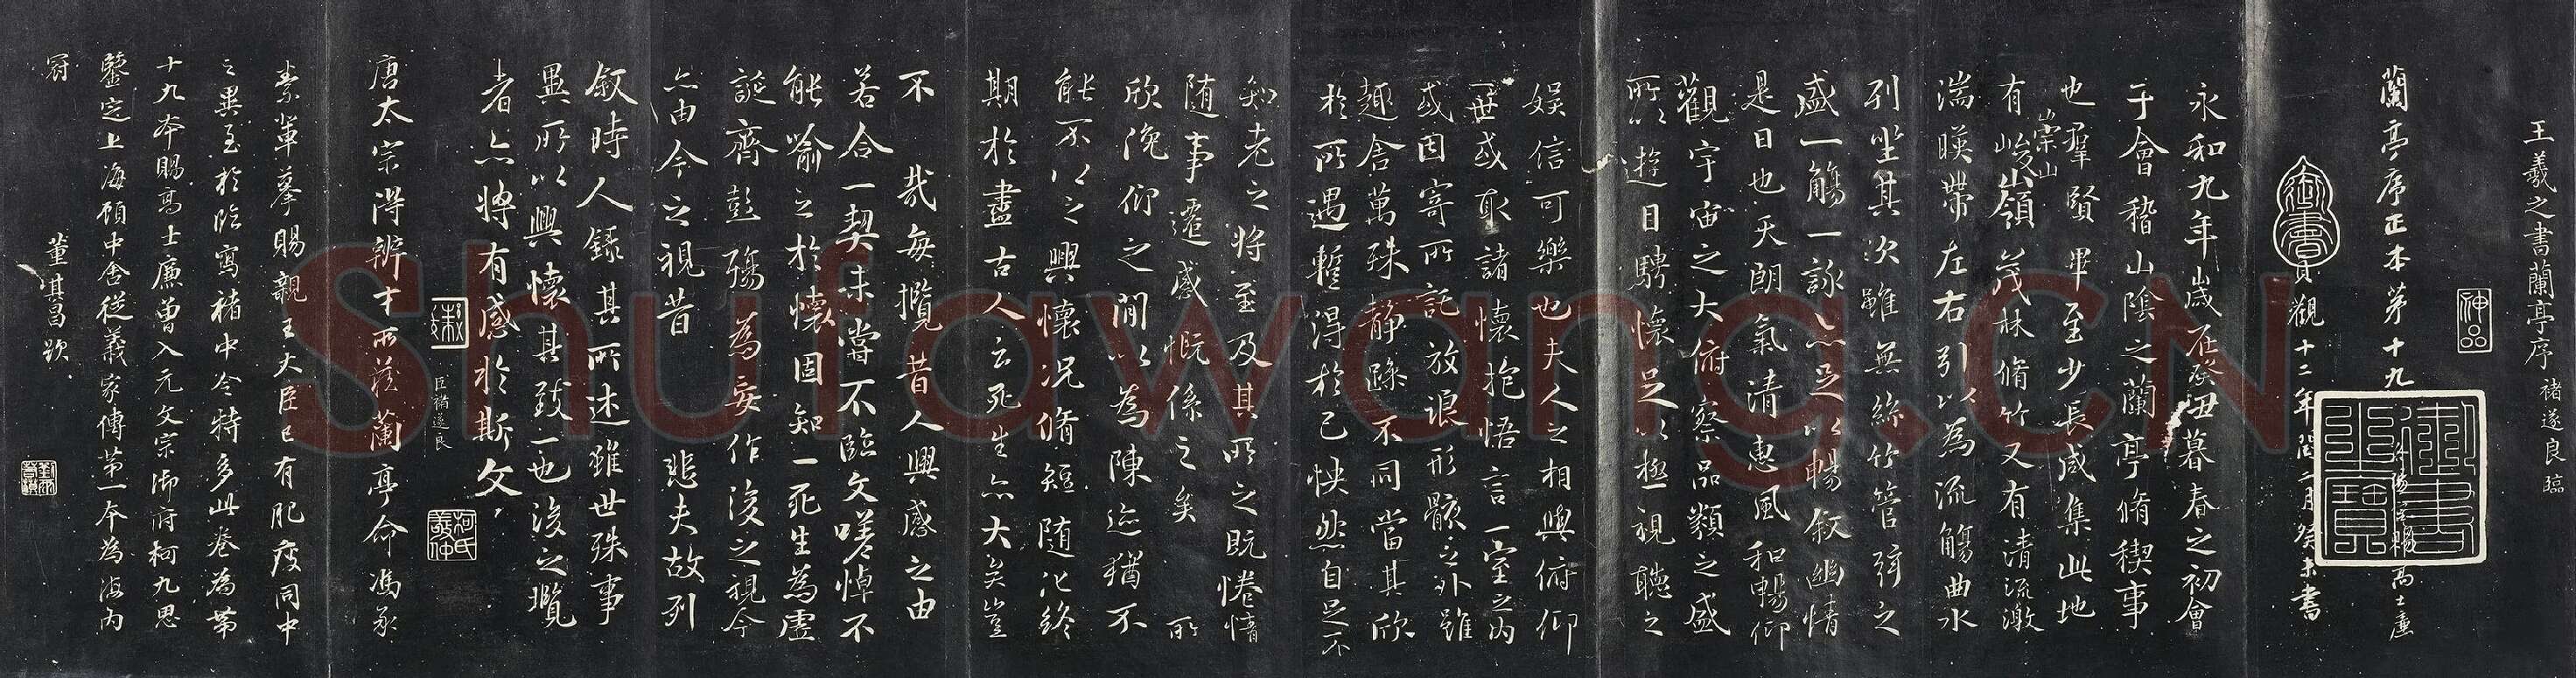 王羲之書蘭亭序 褚遂良臨
神品
蘭亭序正本第十九
本賜高士廉
御書
貞觀十二年閏二月癸未書
永和九年歲在癸丑暮春之初會
于會稽山陰之蘭亭脩稧事
也羣賢畢至少長咸集此地
崇山
有峻嶺茂林脩竹又有清流激
湍暎帶左右引以為流觴曲水
列坐其次雖無絲竹管弦之
盛一觴一詠亦足以暢敘幽情
是日也天朗氣清惠風和暢仰
觀宇宙之大俯察品類之盛
所以遊目騁懷足以極視聽之
娛信可樂也夫人之相與俯仰
一世或取諸懷抱悟言一室之內
或因寄所託放浪形骸之外雖
趣舍萬殊靜躁不同當其欣
於所遇蹔得於己怏然自足不
知老之將至及其所之既惓情
隨事遷感慨係之矣 所
欣俛仰之間以為陳迹猶不
能不以之興懷況脩短隨化終
期於盡古人云死生亦大矣豈
不 哉每攬昔人興感之由
若合一契未嘗不臨文嗟悼不
能喻之於懷固知一死生為虛
誕齊彭殤為妄作後之視今
亦由今之視昔 悲夫故列
敘時人錄其所述雖世殊事
異所以興懷其致一也後之攬
者亦將有感於斯文
臣褚遂良
柯氏敬仲
唐太宗得辨才所藏蘭亭命馮承
素軰摹賜親王大臣已有肥瘦同中
之異至於臨寫褚中令特多此卷為第
十九本賜高士廉曾入元文宗御府柯九思
鑒定上海顧中舍從義家傳第一本為海內
冠 董其昌跋
Shufawang.CN